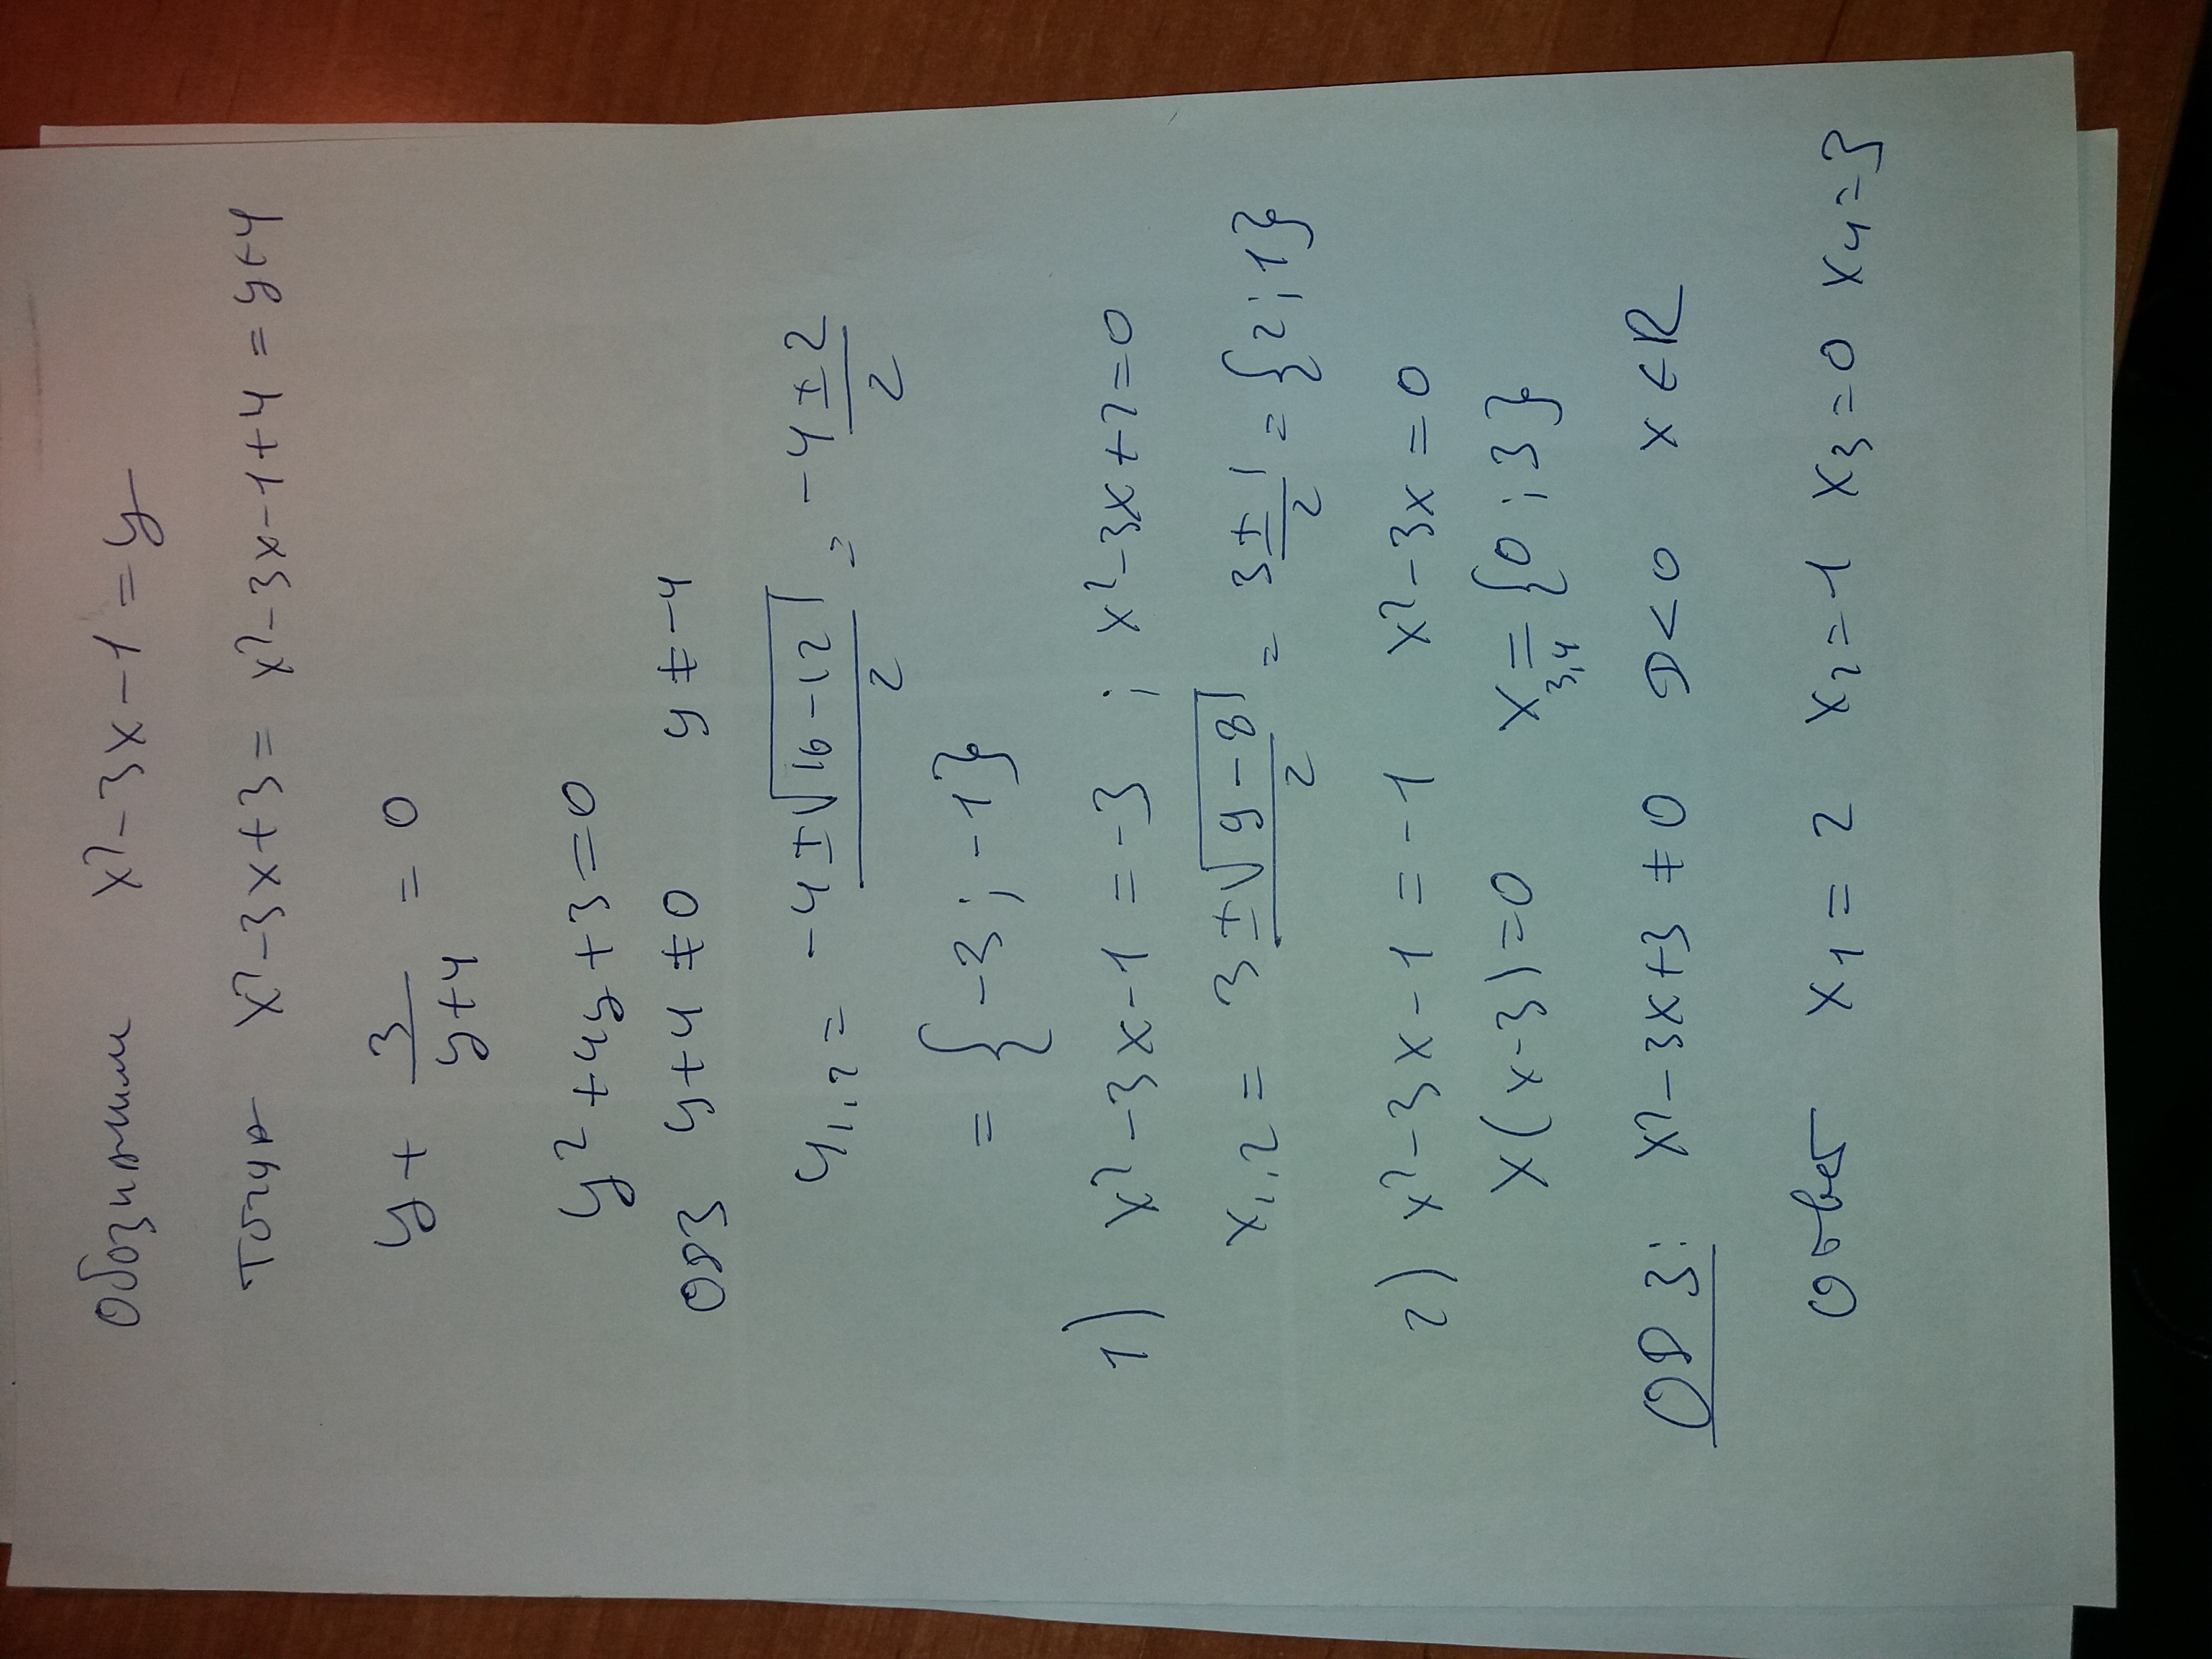 Обозначим x²-3x-1=y
Тогда x²-3x+3= x²-3x-1+4=y+4
y + 3/(y+4) = 0
y²+4y+3=0
ОДЗ y+4≠0 y≠-4
y₁,₂= (-4±√(16-12))/2 = (-4±2)/2
={-3;-1}
1) x²-3x-1=-3 ; x²-3x+2=0
x₁,₂= (3±√(9-8))/2 = (3±1)/2 = {2;1}
2) x²-3x-1=-1 x²-3x=0
x(x-3)=0 x₃,₄={0;3}
ОДЗ: x²-3x+3≠0 D<0 x∈R
Ответ x₁=2 x₂=1 x₃=0 x₄=3